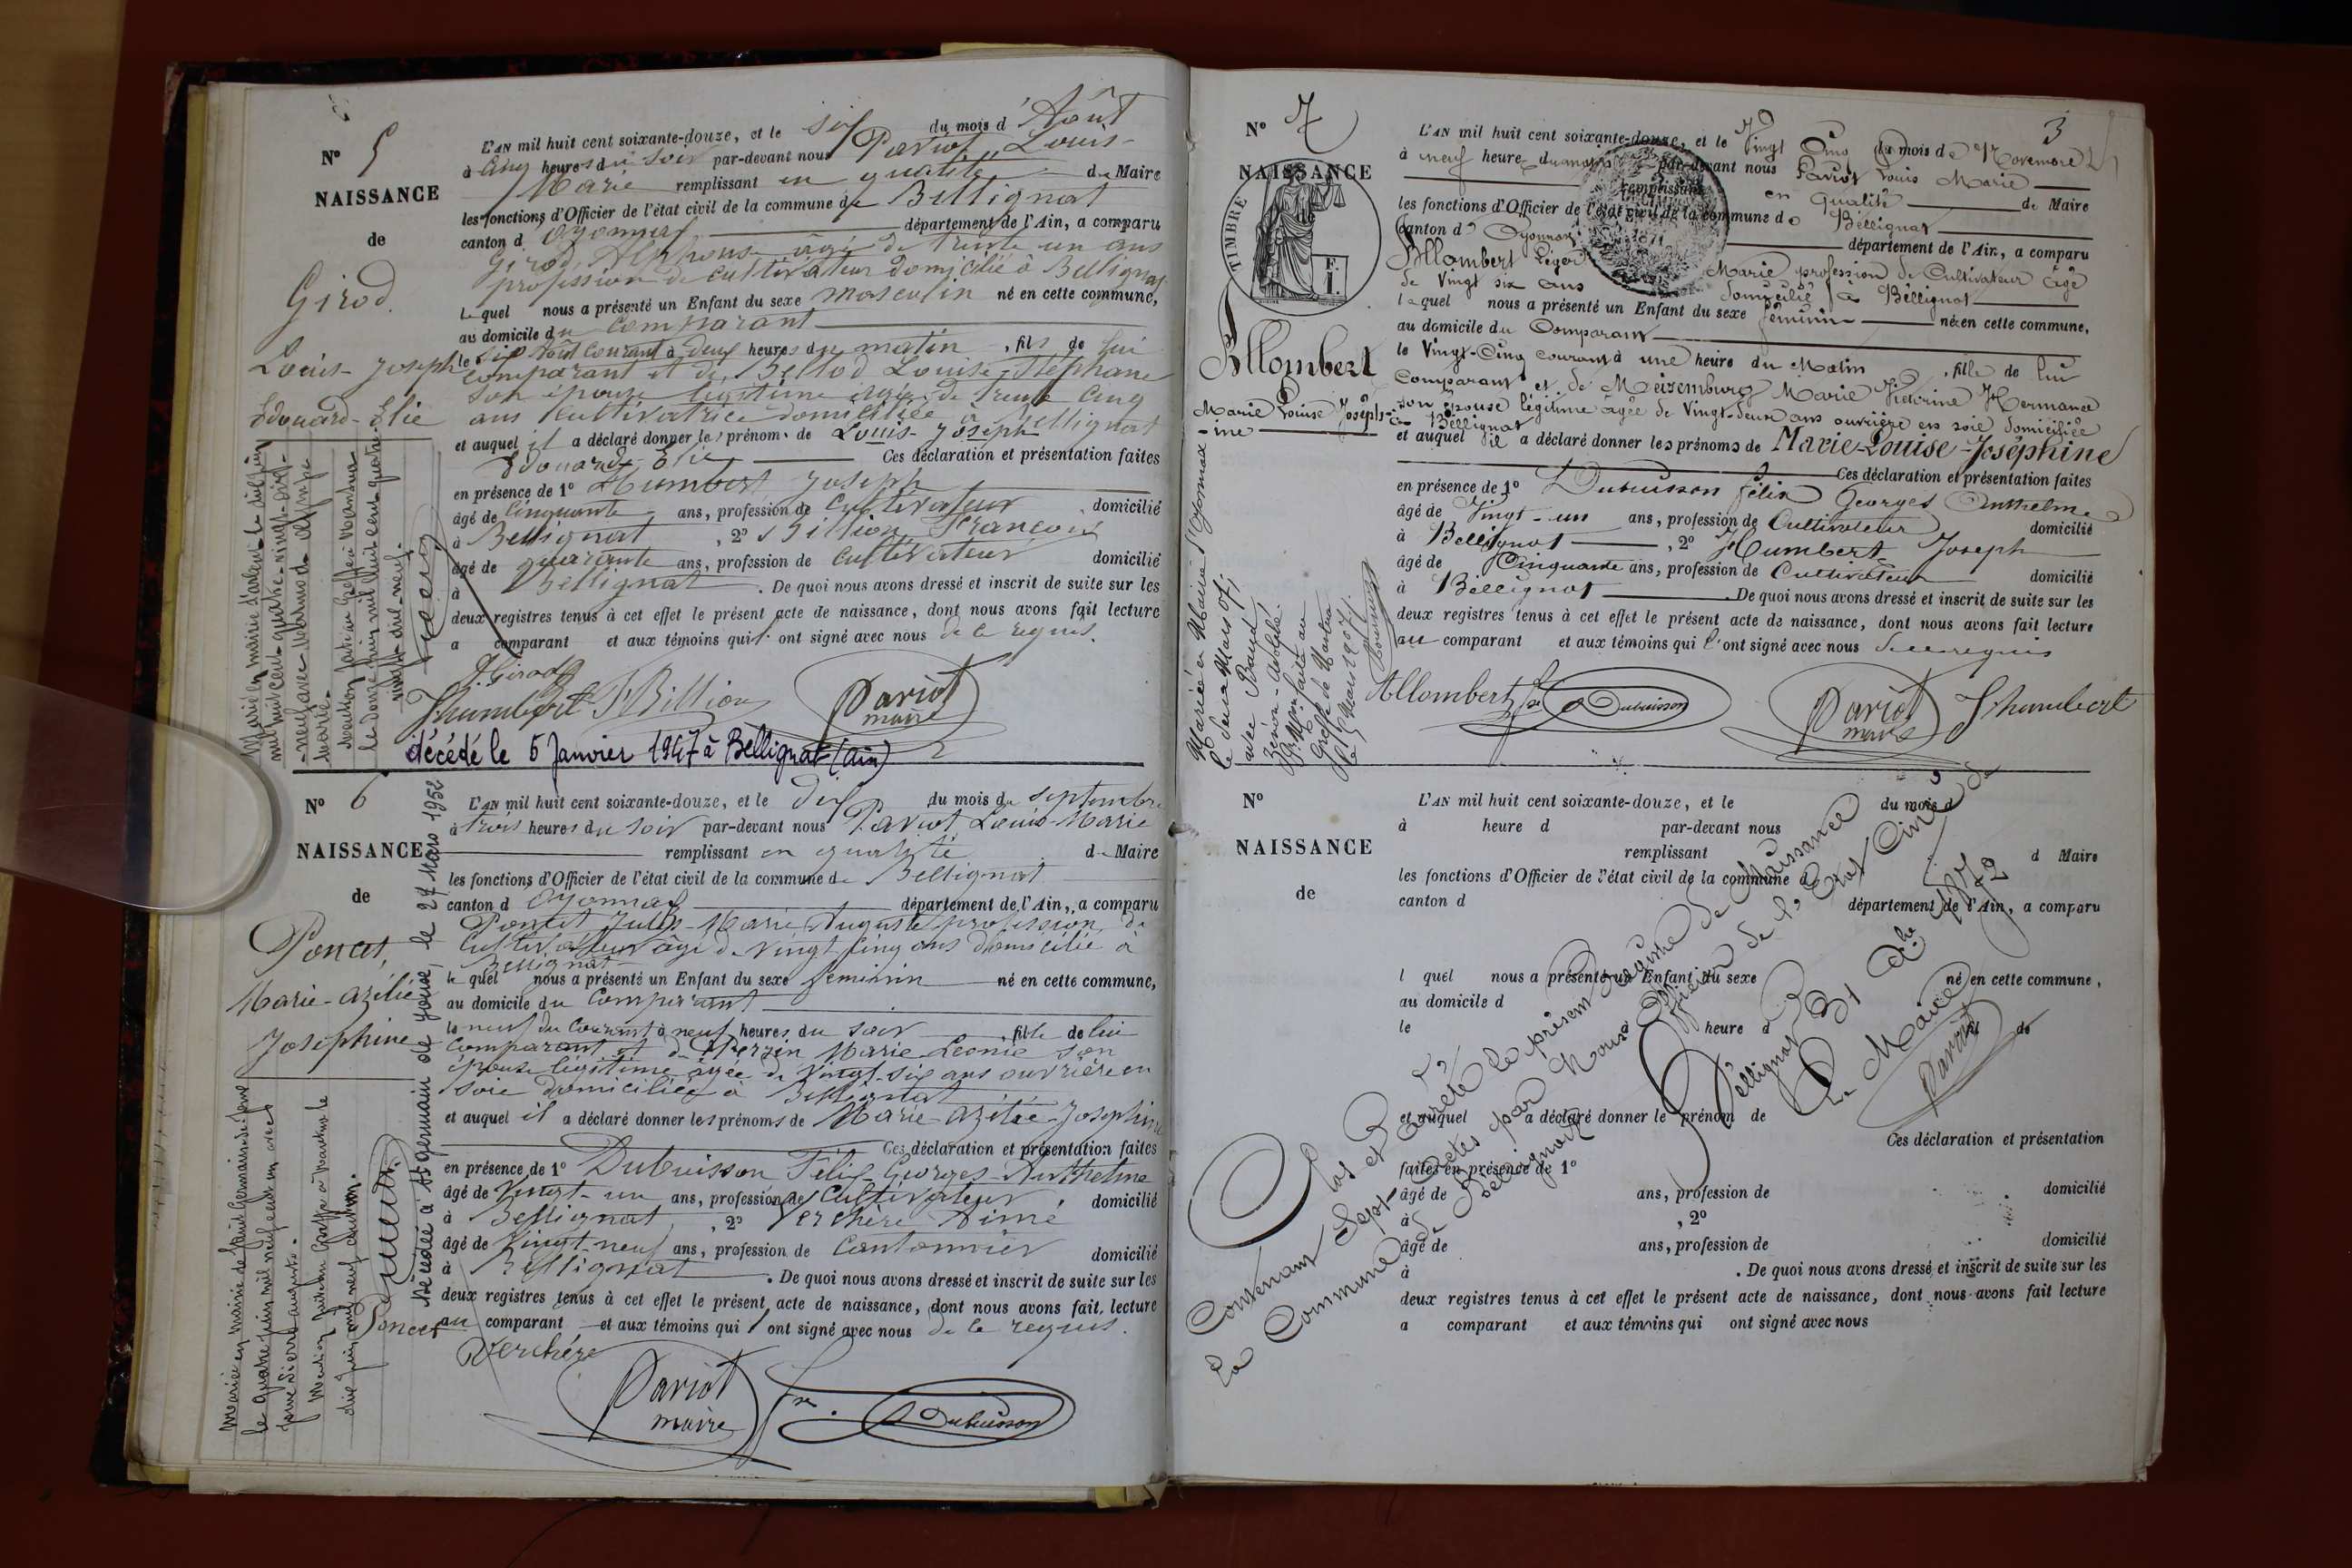 N° 5
NAISSANCE
de
Girod
Louis-Joseph
Edouard-Elie
L'AN mil huit cent soixante-douze, et le six du mois d'Août
à cinq heures du soir par-devant nous Pariot Louis-
Marie remplissant en qualité de Maire
les fonctions d'Officier de l'état civil de la commune de Bellignat
canton d'Oyonnax département de l'Ain, a comparu
Girod, Alphonse âgé de trente un ans
profession de cultivateur domicilié à Bellignat
lequel nous a présenté un Enfant du sexe masculin né en cette commune,
au domicile du comparant
le six Août courant à deux heures du matin, fils de lui
comparant et de Bellod Louise-Stéphane
son épouse légitime âgée de trente cinq
ans cultivatrice domiciliée à Bellignat
et auquel il a déclaré donner les prénoms de Louis-Joseph
Edouard-Elie Ces déclaration et présentation faites
en présence de 1° Humbert Joseph
âgé de cinquante ans, profession de cultivateur domicilié
à Bellignat, 2° Billion François
âgé de quarante ans, profession de cultivateur domicilié
à Bellignat. De quoi nous avons dressé et inscrit de suite sur les
deux registres tenus à cet effet le présent acte de naissance, dont nous avons fait lecture
a comparant et aux témoins qui l'ont signé avec nous de ce requis.
A. Girod
J humbert F Billion Pariot
maire
décédé le 5 Janvier 1947 à Bellignat (ain)
mil huit cent quatre-vingt-dix-
-neuf avec
Marie.
le douze juin mil huit cent quatre
vingt-dix-neuf.
N° 6
NAISSANCE
de
Poncet,
Marie-Azélie
Joséphine
L'AN mil huit cent soixante-douze, et le dix du mois de septembre
à trois heures du soir par-devant nous Pariot Louis-Marie
remplissant en qualité de Maire
les fonctions d'Officier de l'état civil de la commune de Bellignat
canton d'Oyonnax département de l'Ain, a comparu
Poncet Jules-Marie Auguste profession de
cultivateur âgé de vingt cinq ans domicilié à
Bellignat
lequel nous a présenté un Enfant du sexe féminin né en cette commune,
au domicile du comparant
le neuf du courant à neuf heures du soir, fille de lui
comparant et de Perrin Marie-Leonie son
épouse légitime âgée de vingt-six ans ouvrière en
soie domiciliée à Bellignat
et auquel il a déclaré donner les prénoms de Marie-Azélie-Joséphine
Ces déclaration et présentation faites
en présence de 1° Dubuisson Félix-Georges-Anthelme
âgé de vingt-un ans, profession de cultivateur domicilié
à Bellignat, 2° Verchère Aimé
âgé de vingt-neuf ans, profession de cantonnier domicilié
à Bellignat. De quoi nous avons dressé et inscrit de suite sur les
deux registres tenus à cet effet le présent acte de naissance, dont nous avons fait lecture
au comparant et aux témoins qui l'ont signé avec nous de ce requis.
Poncet
Verchère
Pariot
maire
Dubuisson
Mariée en mairie de Saint Germain de Joux
le quatre juin mil neuf cent un avec
dix juin mil neuf cent un.
Décédée à St Germain de Joux, le 27 Mars 1952
3
N° 7
NAISSANCE
de
TIMBRE
Allombert
Marie Louise Joséph-
-ine
L'AN mil huit cent soixante-douze, et le Vingt Cinq du mois de Novembre
à neuf heures du matin par-devant nous Pariot Louis Marie
remplissant en qualité de Maire
les fonctions d'Officier de l'état civil de la commune de Bellignat
canton d'Oyonnax département de l'Ain, a comparu
Allombert Léger Marie profession de Cultivateur âgé
de Vingt six ans domicilié à Béllignat
lequel nous a présenté un Enfant du sexe féminin née en cette commune,
au domicile du Comparant
le Vingt-Cinq courant à une heure du Matin, fille de lui
Comparant et de Meizembourg Marie Victorine Hermance
son épouse légitime âgée de Vingt-deux ans ouvrière en soie domiciliée
à Béllignat
et auquel il a déclaré donner les prénoms de Marie-Louise-Joséphine
Ces déclaration et présentation faites
en présence de 1° Dubuisson Félix Georges Anthelme
âgé de Vingt-un ans, profession de Cultivateur domicilié
à Béllignat, 2° Humbert Joseph
âgé de Cinquante ans, profession de Cultivateur domicilié
à Béllignat De quoi nous avons dressé et inscrit de suite sur les
deux registres tenus à cet effet le présent acte de naissance, dont nous avons fait lecture
au comparant et aux témoins qui l'ont signé avec nous de ce requis
Allombert Dubuisson Pariot J humbert
maire
Mariée en Mairie d'Oyonnax
avec
Greffe de Nantua
N°
NAISSANCE
de
L'AN mil huit cent soixante-douze, et le du mois d
à heure d par-devant nous
remplissant d Maire
les fonctions d'Officier de l'état civil de la commune d
canton d département de l'Ain, a comparu
l quel nous a présenté un Enfant du sexe né en cette commune,
au domicile d
le heure d fil de
et auquel a déclaré donner le prénom de
Ces déclaration et présentation
faites en présence de 1°
âgé de ans, profession de domicilié
à , 2°
âgé de ans, profession de domicilié
à . De quoi nous avons dressé et inscrit de suite sur les
deux registres tenus à cet effet le présent acte de naissance, dont nous avons fait lecture
a comparant et aux témoins qui ont signé avec nous
Clos et Arrêté le présent registre de Naissance
Contenant Sept Actes par Nous Officier de l'Etat Civil de
La Commune de Bellignat
Béllignat 31 Xbre 1872
Le Maire
Pariot